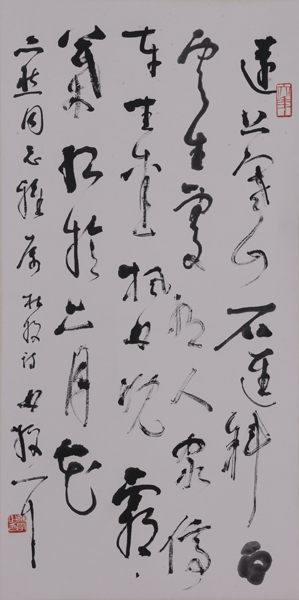 遠上寒山石徑斜白
雲生處有人家停
車坐愛楓林晚霜
葉紅於二月花
同志雅屬 杜牧诗 林散耳